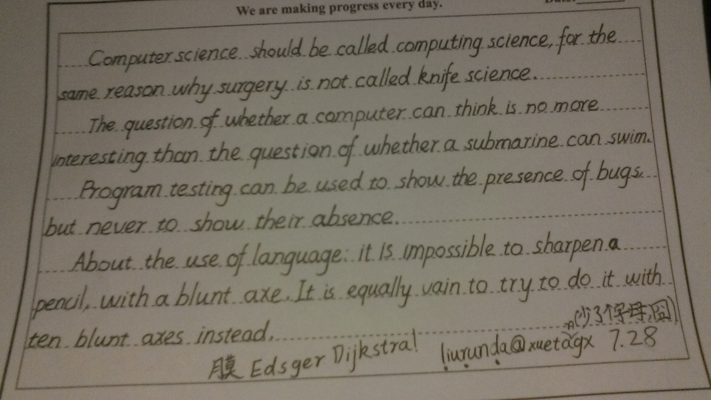 We are making progress every day.
Computer science should be called computing science, for the
same reason why surgery is not called knife science.
The question of whether a computer can think is no more
interesting than the question of whether a submarine can swim.
Program testing can be used to show the presence of bugs,
but never to show their absence.
About the use of language: it is impossible to sharpen a
pencil, with a blunt axe. It is equally vain to try to do it with
ten blunt axes instead.
(少了个字母,囧)
膜 Edsger Dijkstra! liurunda@xuetagx 7.28